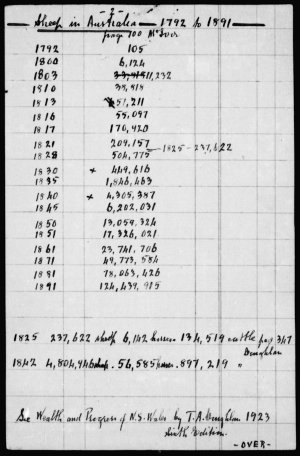 2
Sheep in Australia — 1792 to 1891 —
page 700 McIvor
1792 105
1800 6,124
1803 11,232
1810 33,818
1813 51,211
1816 55,097
1817 170,920
1821 209,157
— 1825 - 237,622
1828 504,775
1830 x 444,616
1835 1,846,463
1840 x 4,305,387
1845 6,202,031
1850 13,059,324
1851 17,326,021
1861 23,741,706
1871 49,773,584
1881 78,063,426
1891 124,439,915
1825 237,622 sheep 6,142 horses 134,519 cattle page 347
Coughlan
1842 4,804,946 sheep. 56,585 horses. 897,219 "
See Wealth and Progress of N.S. Wales by T.A. Coughlan 1923
sixth Edition.
- OVER -